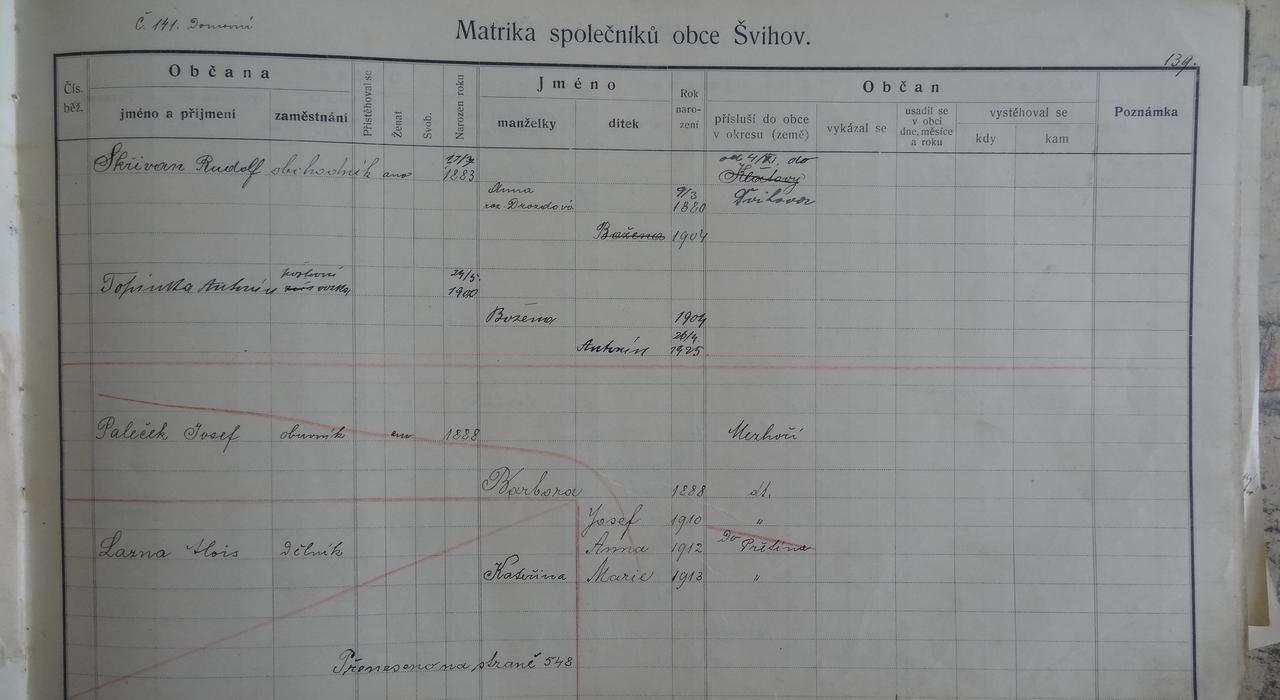 Č. 141. Domovní
Matrika společníků obce Švihov.
139.
Čís. běž.
Občana
jméno a příjmení
zaměstnání
Přistěhoval se
Ženat
Svob.
Narozen roku
Jméno
manželky
dítek
Rok naro- zení
Občan
přísluší do obce v okresu (země)
vykázal se
usadil se v obci dne, měsíce a roku
vystěhoval se
kdy
kam
Poznámka
Skřivan Rudolf obchodník ano 1883 od do
Klatovy
Anna 9/3 Švihova
roz. Drozdová 1880
Božena 1904
poštovní 24/5.
Topinka Antonín 1900
Božena 1904
26/4.
Antonín 1925
Paleček Josef obuvník ano 1888 Mezhoří
Barbora 1888 dt.
Josef 1910 "
Lazna Alois dělník Anna 1912 Do Přetína
Kateřina Marie 1913 "
Přeneseno na straně 548